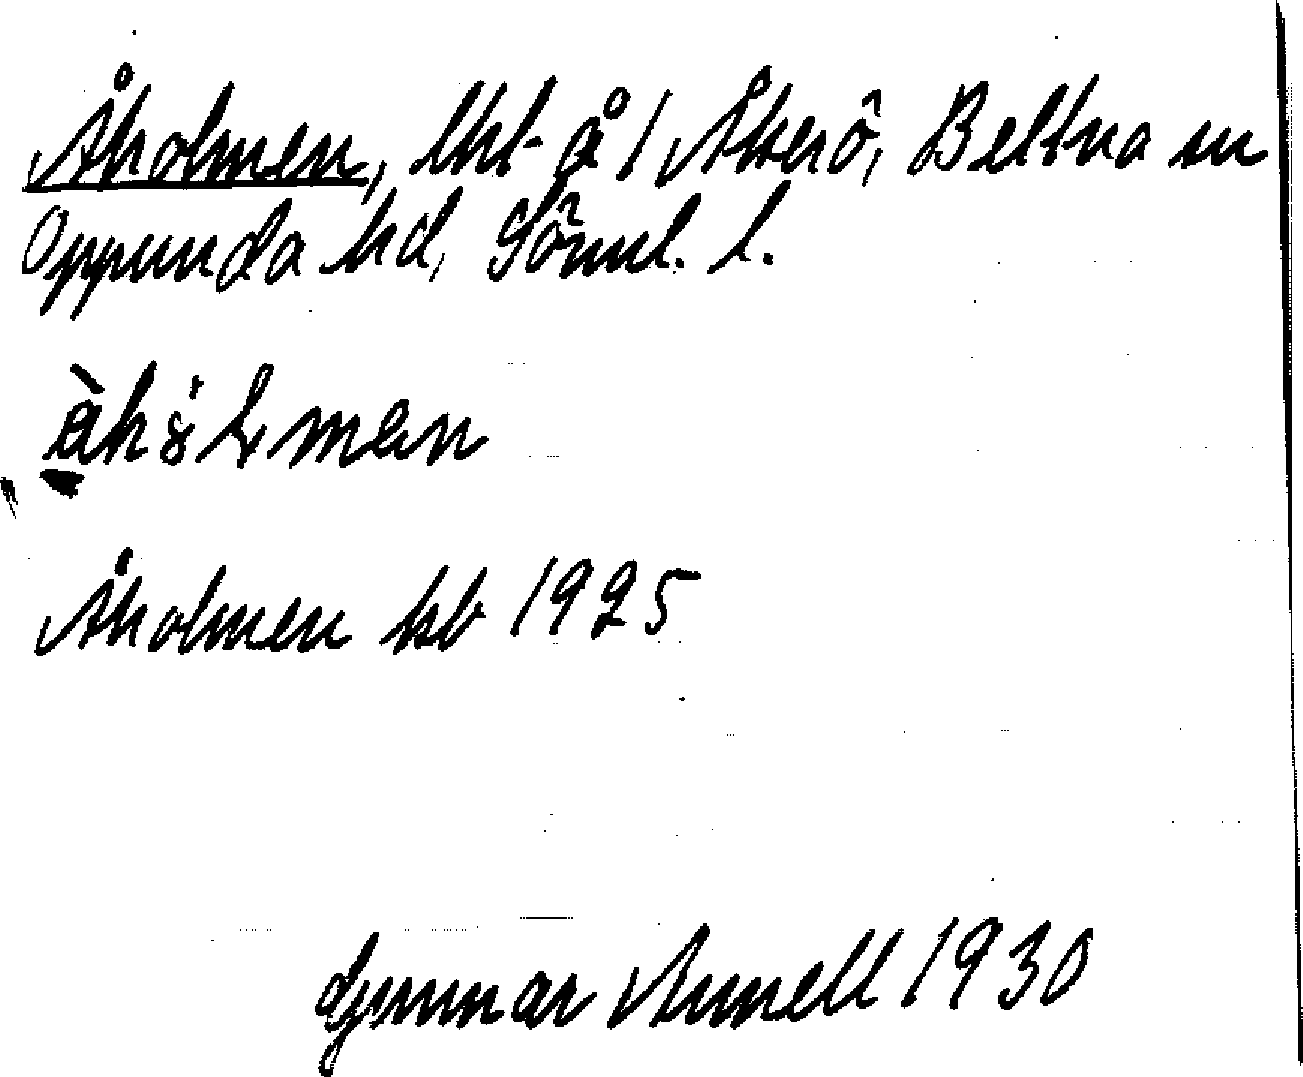 Åholmen, lht å 1 Åkerö, Bettna sn
Oppunda hd, Söml. l.
åhólmen
Åholmen kb 1925
Gunnar Annell 1930